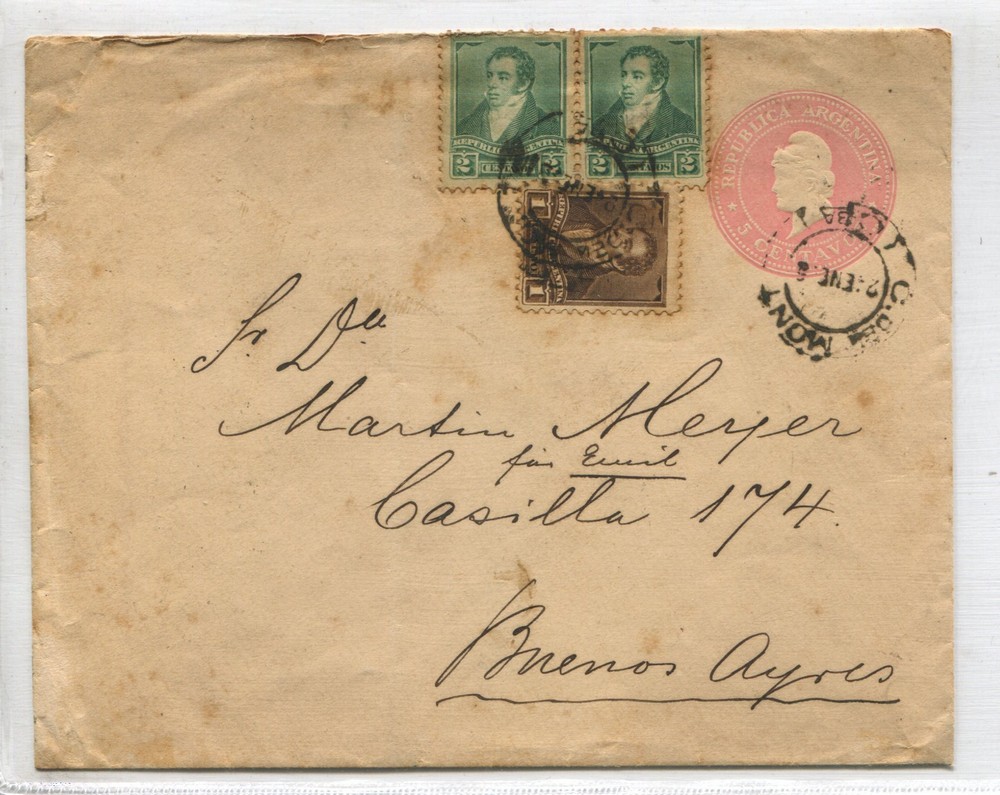 REPUBLICA ARGENTINA
2 2
REPUBLICA ARGENTINA
2 CENTAVOS 2
1 1
REPUBLICA ARGENTINA
5 CENTAVOS
C. DE MONTO
ENE
Sr Dn
Martin Meyer
für Emil
Casilla 174.
Buenos Ayres